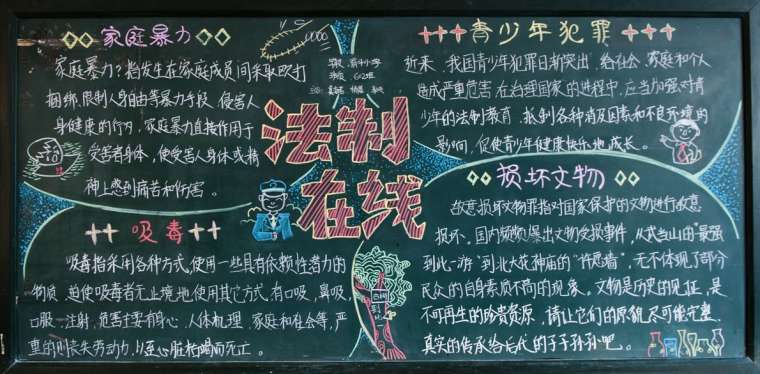 家庭暴力
家庭暴力?指发生在家庭成员间采取殴打
捆绑.限制人身自由等暴力手段,侵害人
身健康的行为,家庭暴力直接作用于
受害者身体,使受害人身体或精
神上感到痛苦和伤害。
法制
在线
青少年犯罪
近来,我国青少年犯罪日渐突出,给社会、家庭和个人
造成严重危害.在治理国家的进程中,应当加强对青
少年的法制教育,抵制各种消极因素和不良环境的
影响,促使青少年健康快乐地成长。
吸毒
吸毒指采用各种方式,使用一些具有依赖性潜力的
物质,迫使吸毒者无止境地使用其它方式,有口吸,鼻吸,
口服、注射,危害主要有身心、人体机理、家庭和社会等,严
重的则丧失劳动力,以至心脏枯竭而死亡。
损坏文物
故意损坏文物罪指对国家保护的文物进行故意
损坏。国内频频爆出文物受损事件,从武当山的"最强
到此一游"到北大花神庙的"许愿墙",无不体现了部分
民众的自身素质不高的现象。文物是历史的见证,是
不可再生的珍贵资源,请让它们的原貌尽可能完整、
真实的传承给后代的子子孙孙吧。